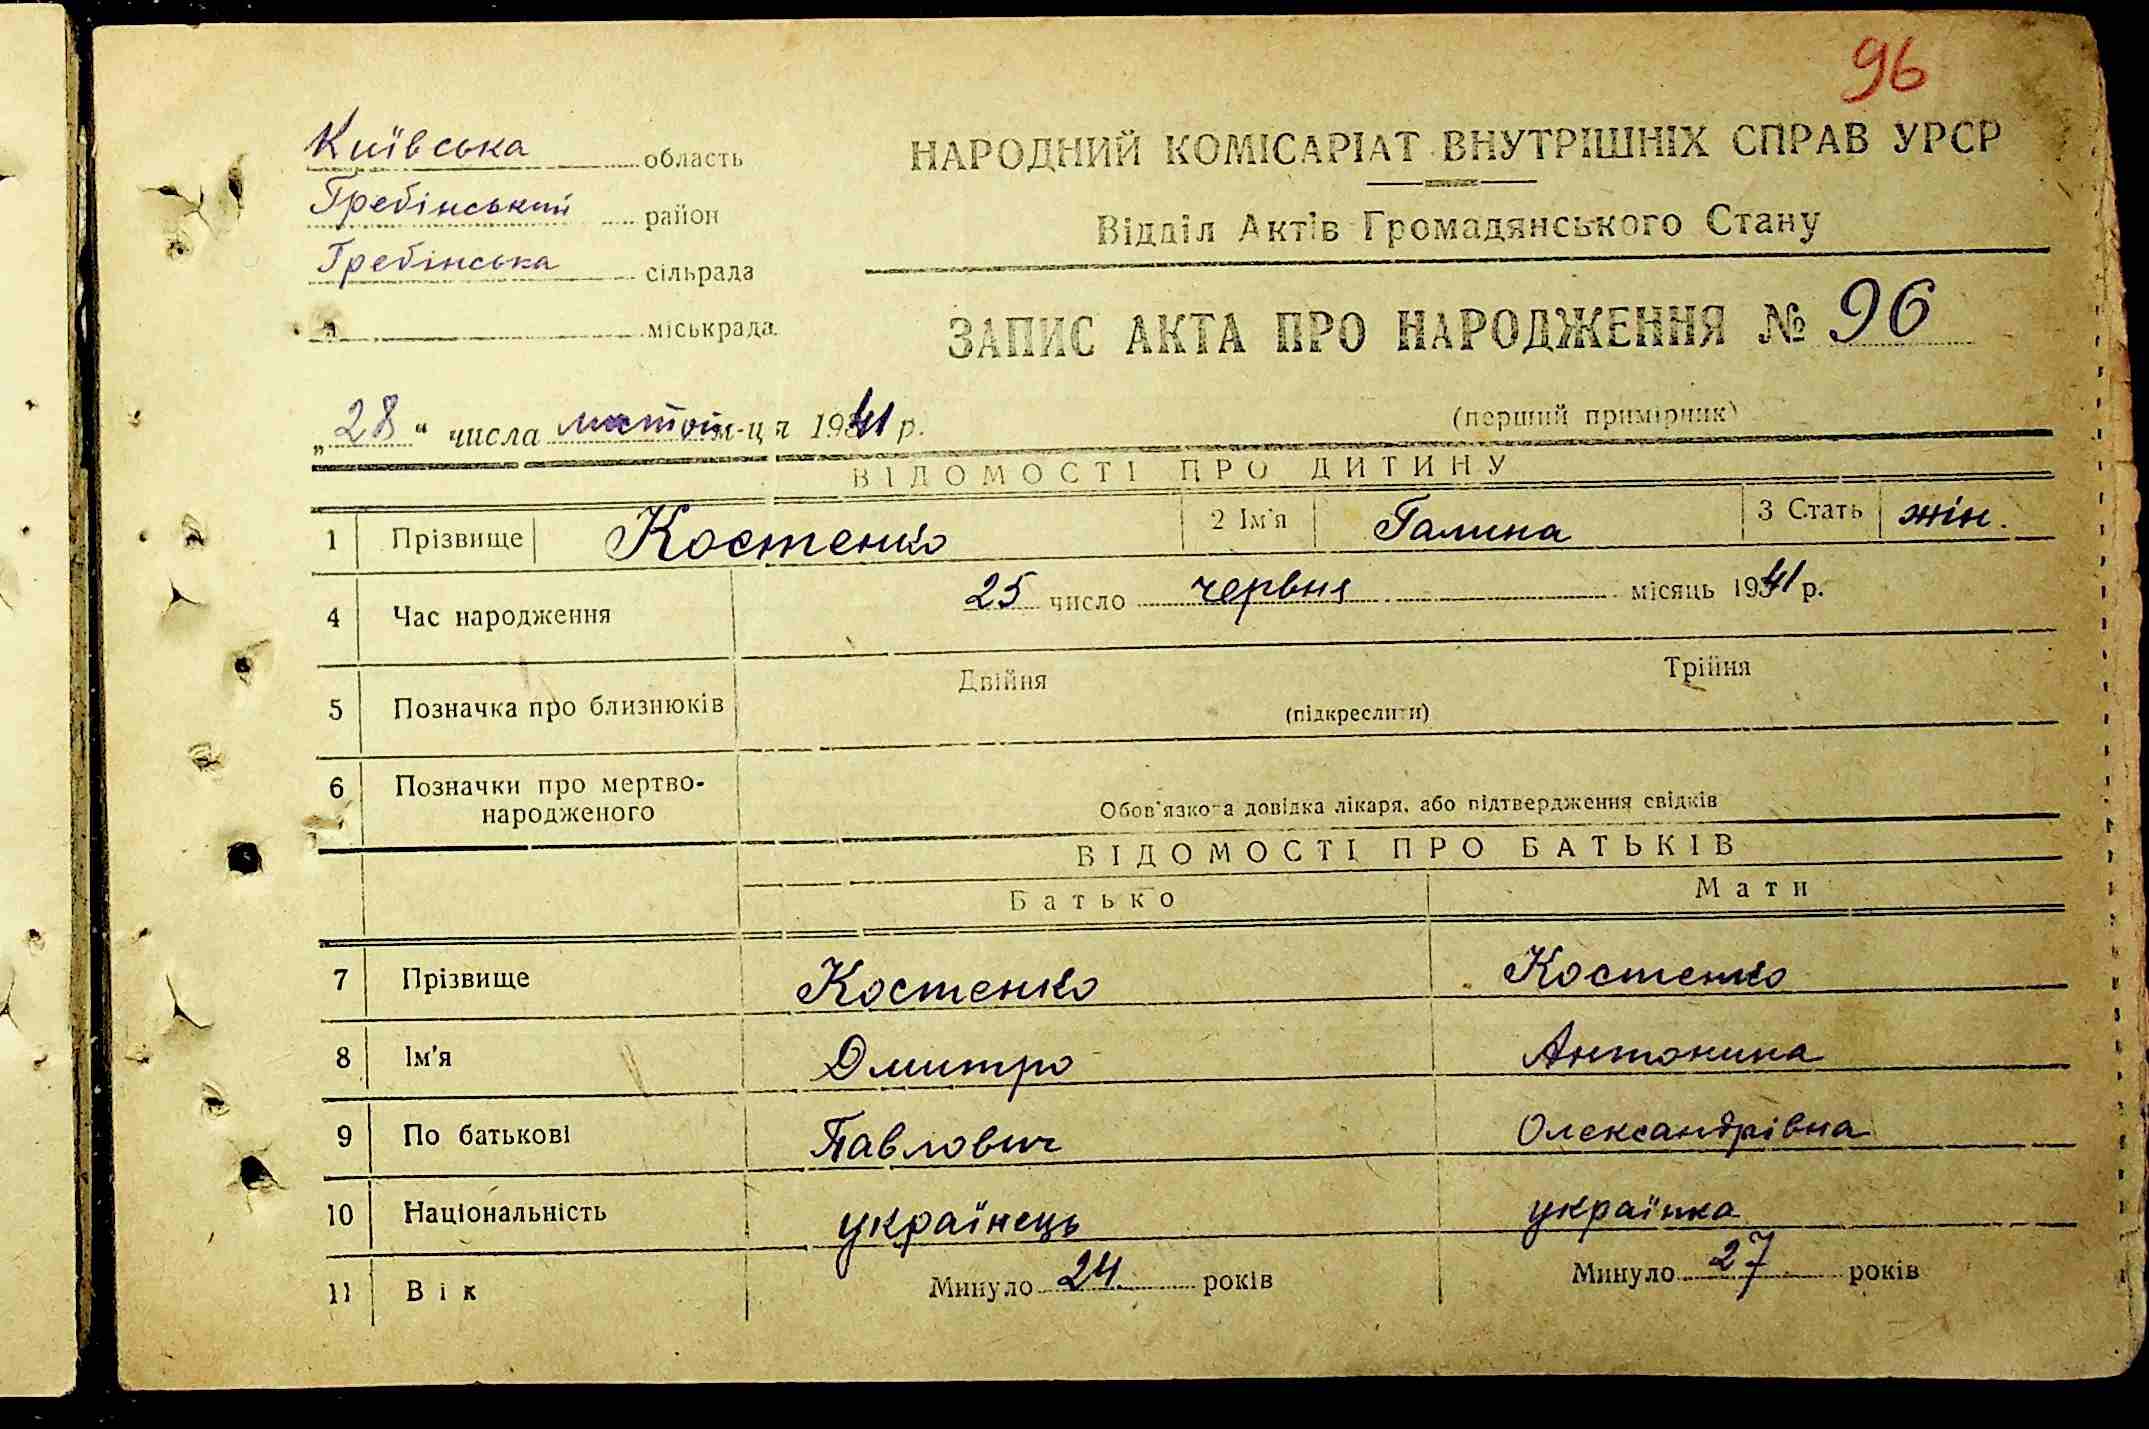 96
Київська область
Гребінський район
Гребінська сільрада
міськрада
НАРОДНИЙ КОМІСАРІАТ ВНУТРІШНІХ СПРАВ УРСР
Відділ Актів Громадянського Стану
ЗАПИС АКТА ПРО НАРОДЖЕННЯ № 96
(перший примірник)
„28“ числа м-ця 1941 р.
ВІДОМОСТІ ПРО ДИТИНУ
1 Прізвище Костенко 2 Ім'я Галина 3 Стать жін.
4 Час народження 25 число червня місяць 1941 р.
5 Позначка про близнюків Двійня Трійня
(підкреслити)
6 Позначки про мертво-
народженого
Обов'язкова довідка лікаря, або підтвердження свідків
ВІДОМОСТІ ПРО БАТЬКІВ
Батько Мати
7 Прізвище Костенко Костенко
8 Ім'я Дмитро Антонина
9 По батькові Павлович Олександрівна
10 Національність українець українка
11 Вік Минуло 24 років Минуло 27 років